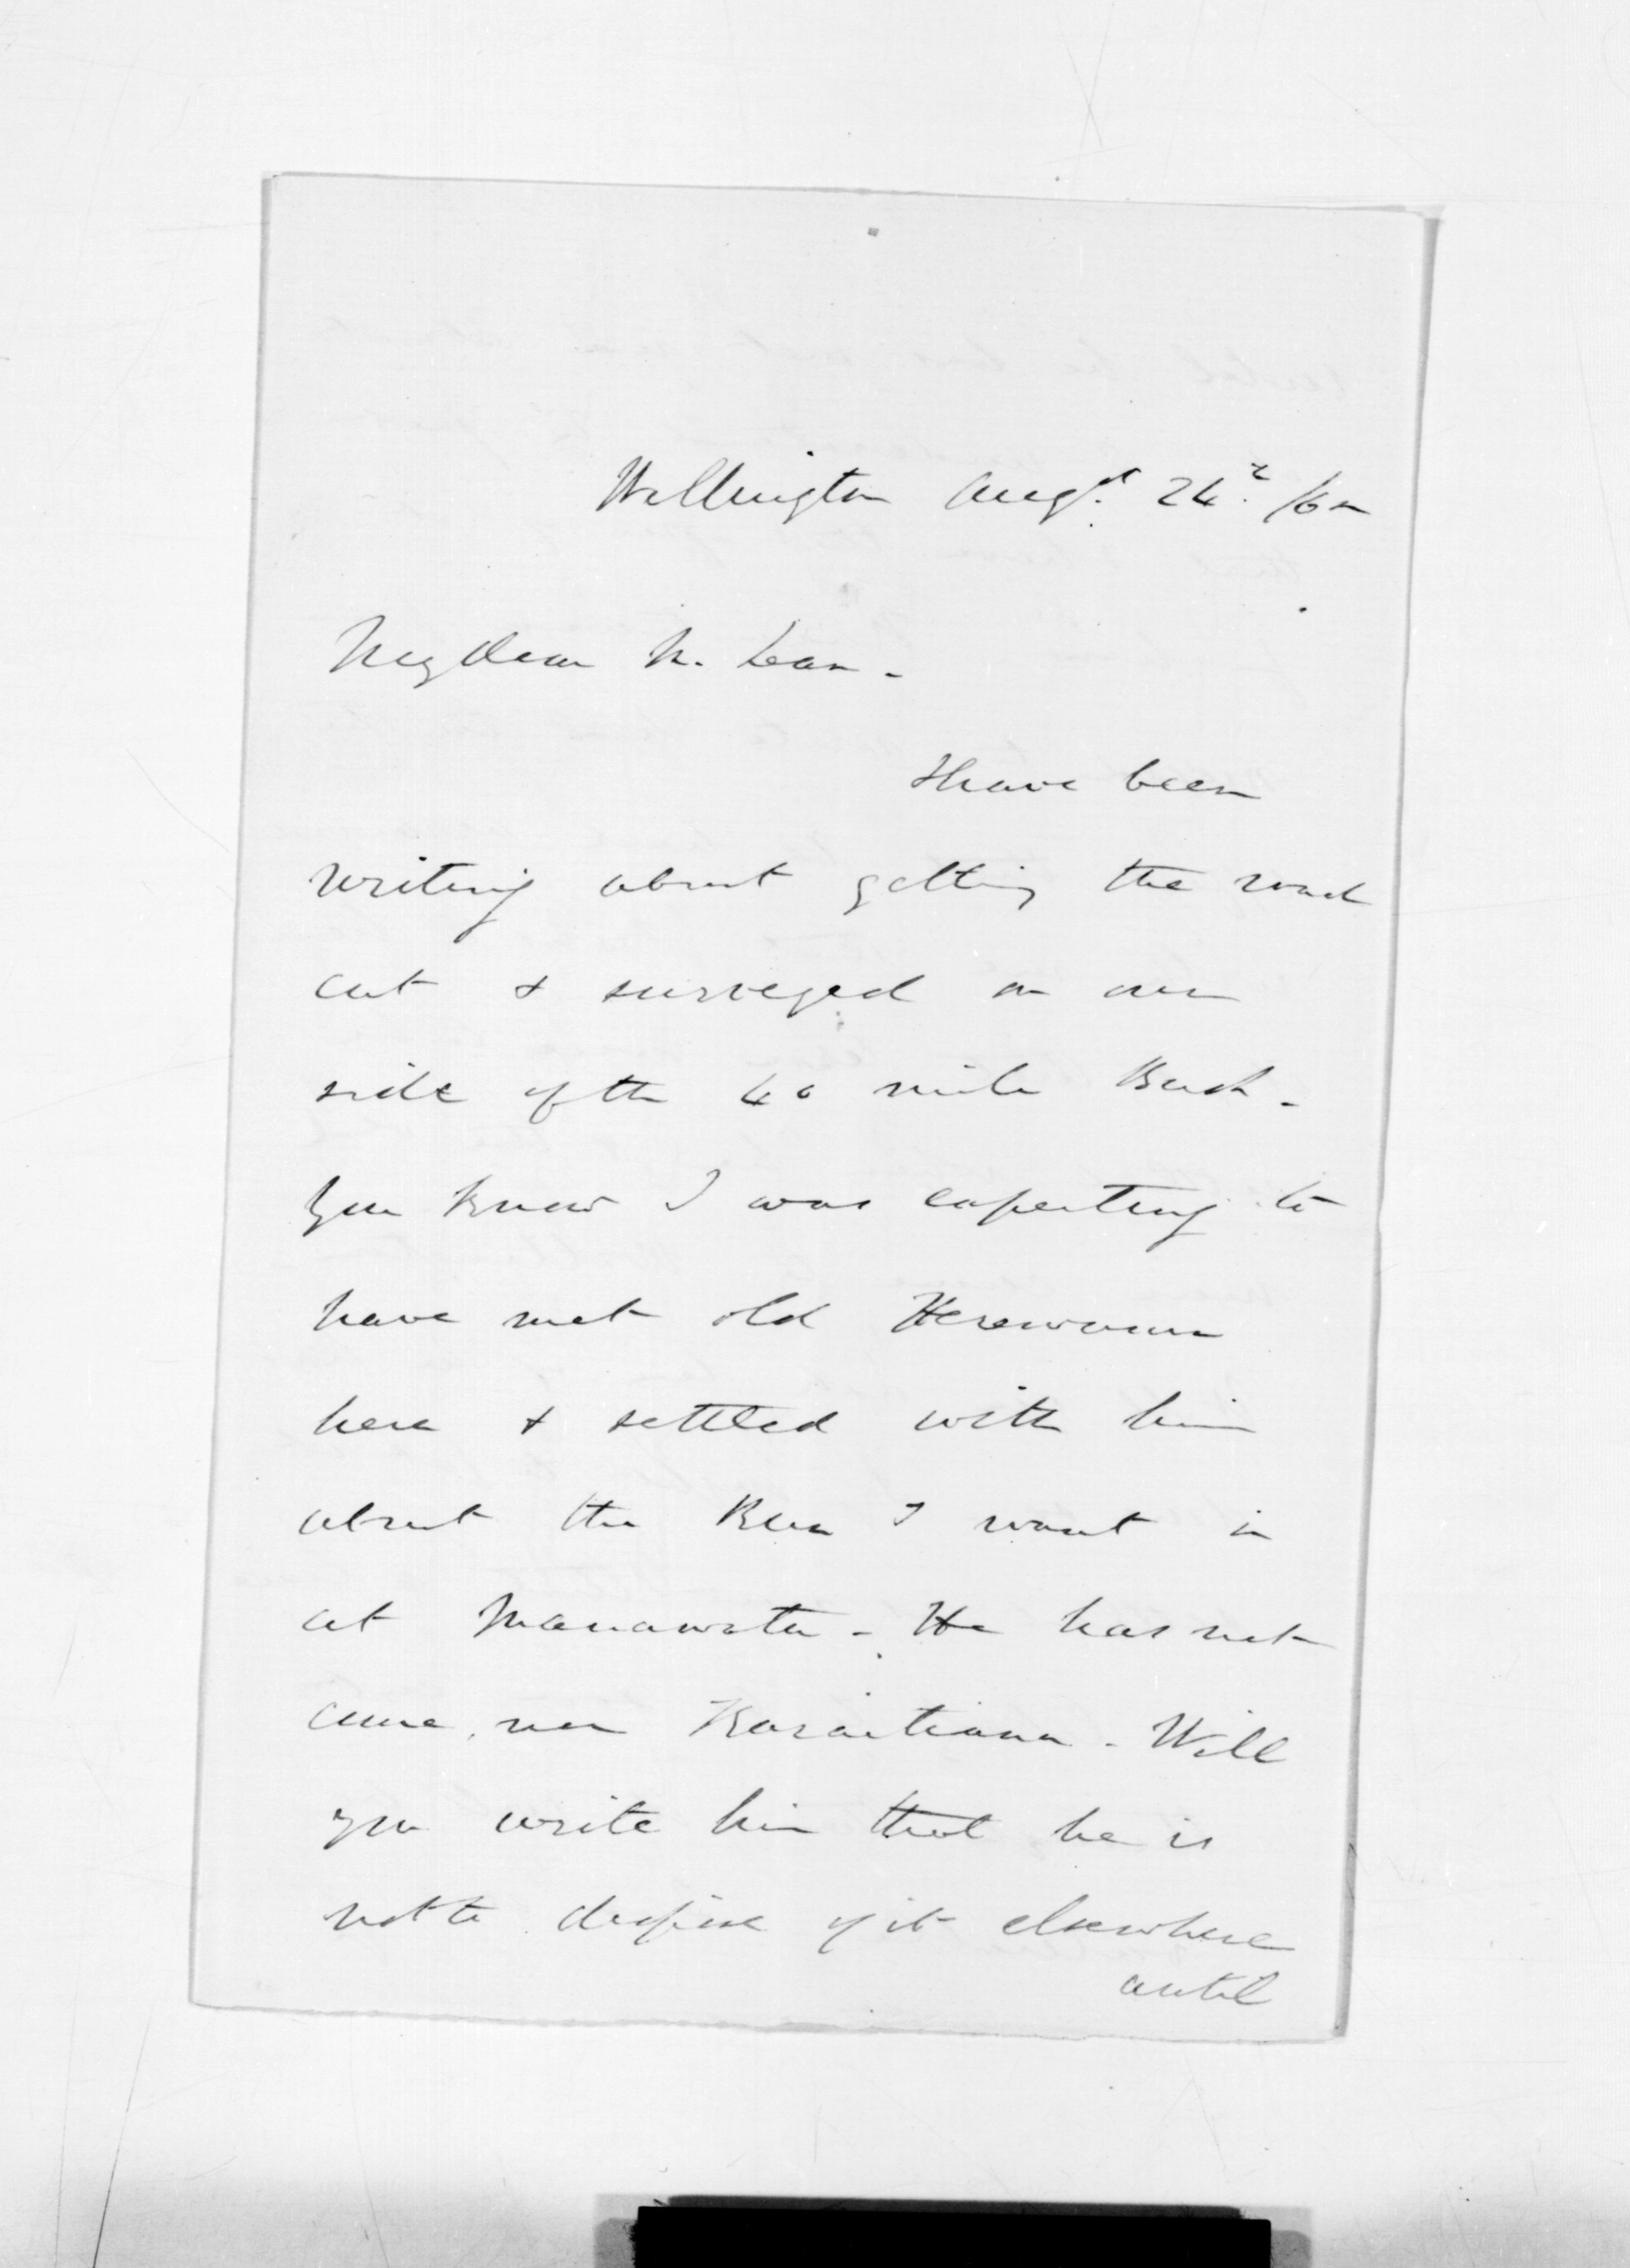 Wellington Augt. 24th /60
My dear McLean -
I have been
writing about getting the road
cut & surveyed on our
side of the 40 mile Bush -
You know I was expecting to
have met old Herewane
here & settled with him
about the Run I want in
at Manawatu - He has not
come, nor Karaitiana - Will
you write him that he is
not to dispose of it elsewhere
until